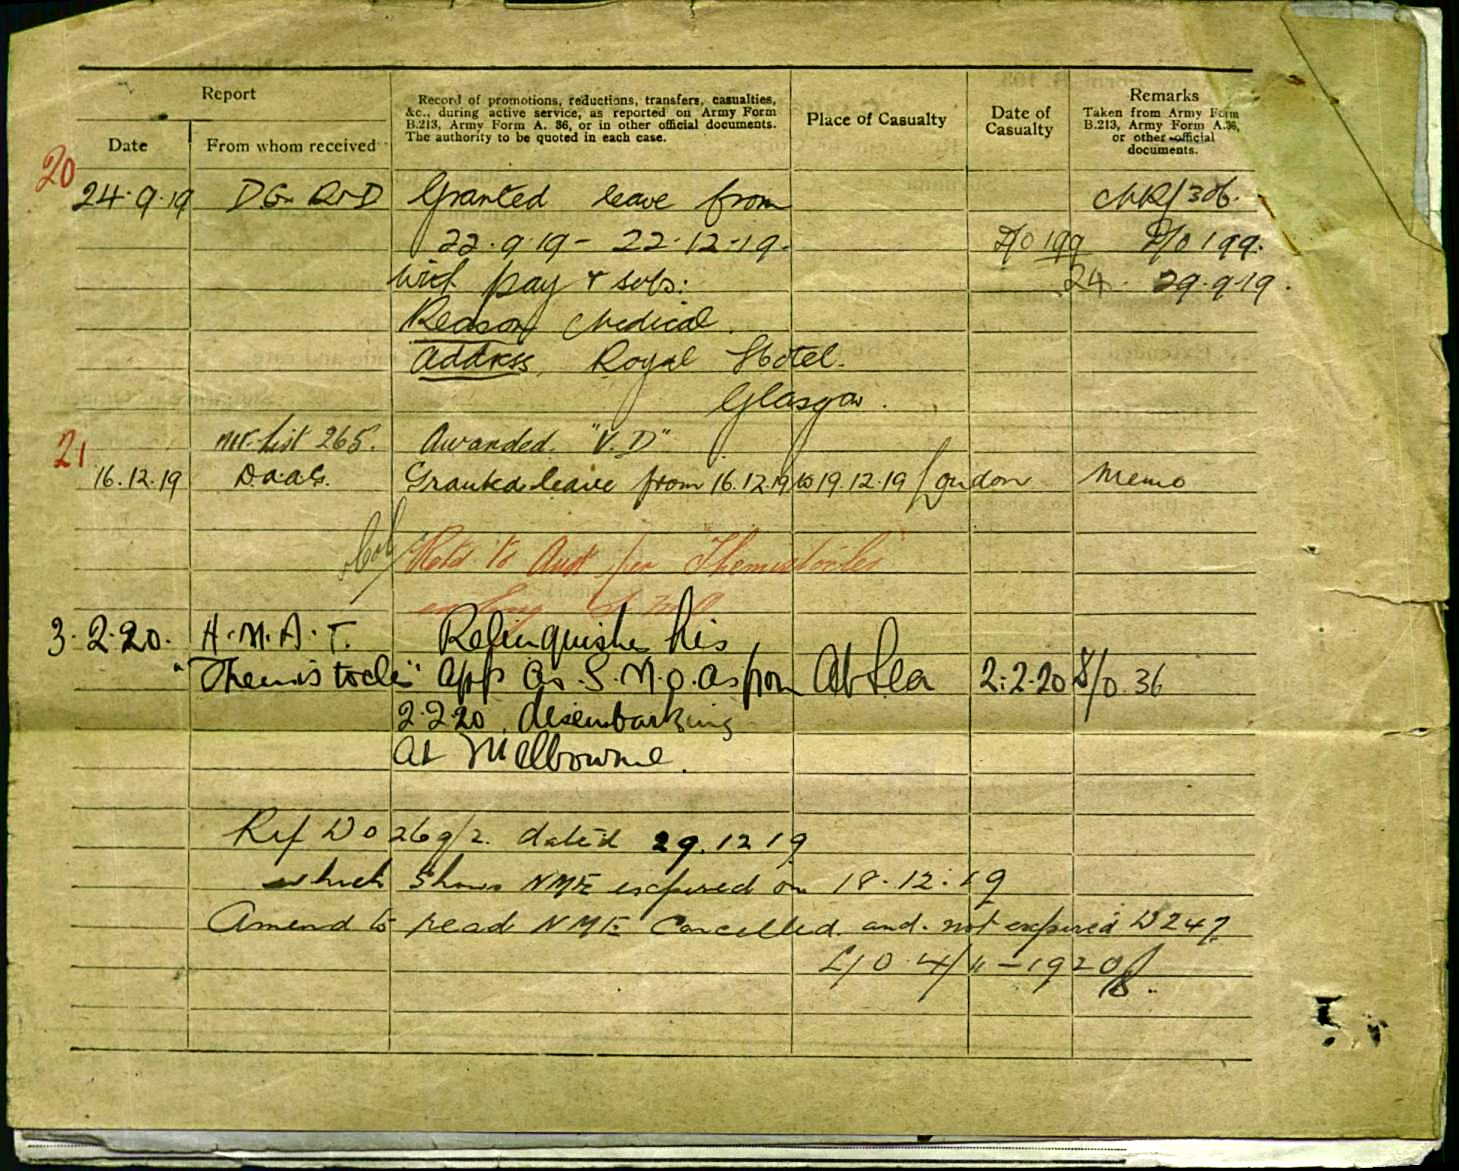 Report
Date
From whom received
Record of promotions, reductions, transfers, casualties,
&c., during active service, as reported on Army Form
B.213, Army Form A. 36, or in other official documents.
The authority to be quoted in each case.
Place of Casualty
Date of
Casualty
Remarks
Taken from Army Form
B.213, Army Form A.36,
or other official
documents.
20
24.9.19 Granted leave from
22.9.19 - 22.12.19. D/O 199 D/O 199.
with pay & subs: 24. 29.9.19.
Reason Medical.
Address, Royal Hotel.
Glasgow.
21
List 265. Awarded. "V.D"
16.12.19 D.A.A.G. Granted leave from 16.12.19 to 19.12.19 London Memo
Retd to Aust per "Themistocles"
S.M.O
3.2.20. H.M.A.T. Relinquishes his
"Themistocles" app as S.M.O. as from At Sea 2.2.20 S/O.36
2.2.20, disembarking
at Melbourne.
Ref D O 269/2. dated 29.12.19
which Shows NME expired on 18.12.19
Amend to read NME Cancelled. and. not expired D247
L10.4/11-1920